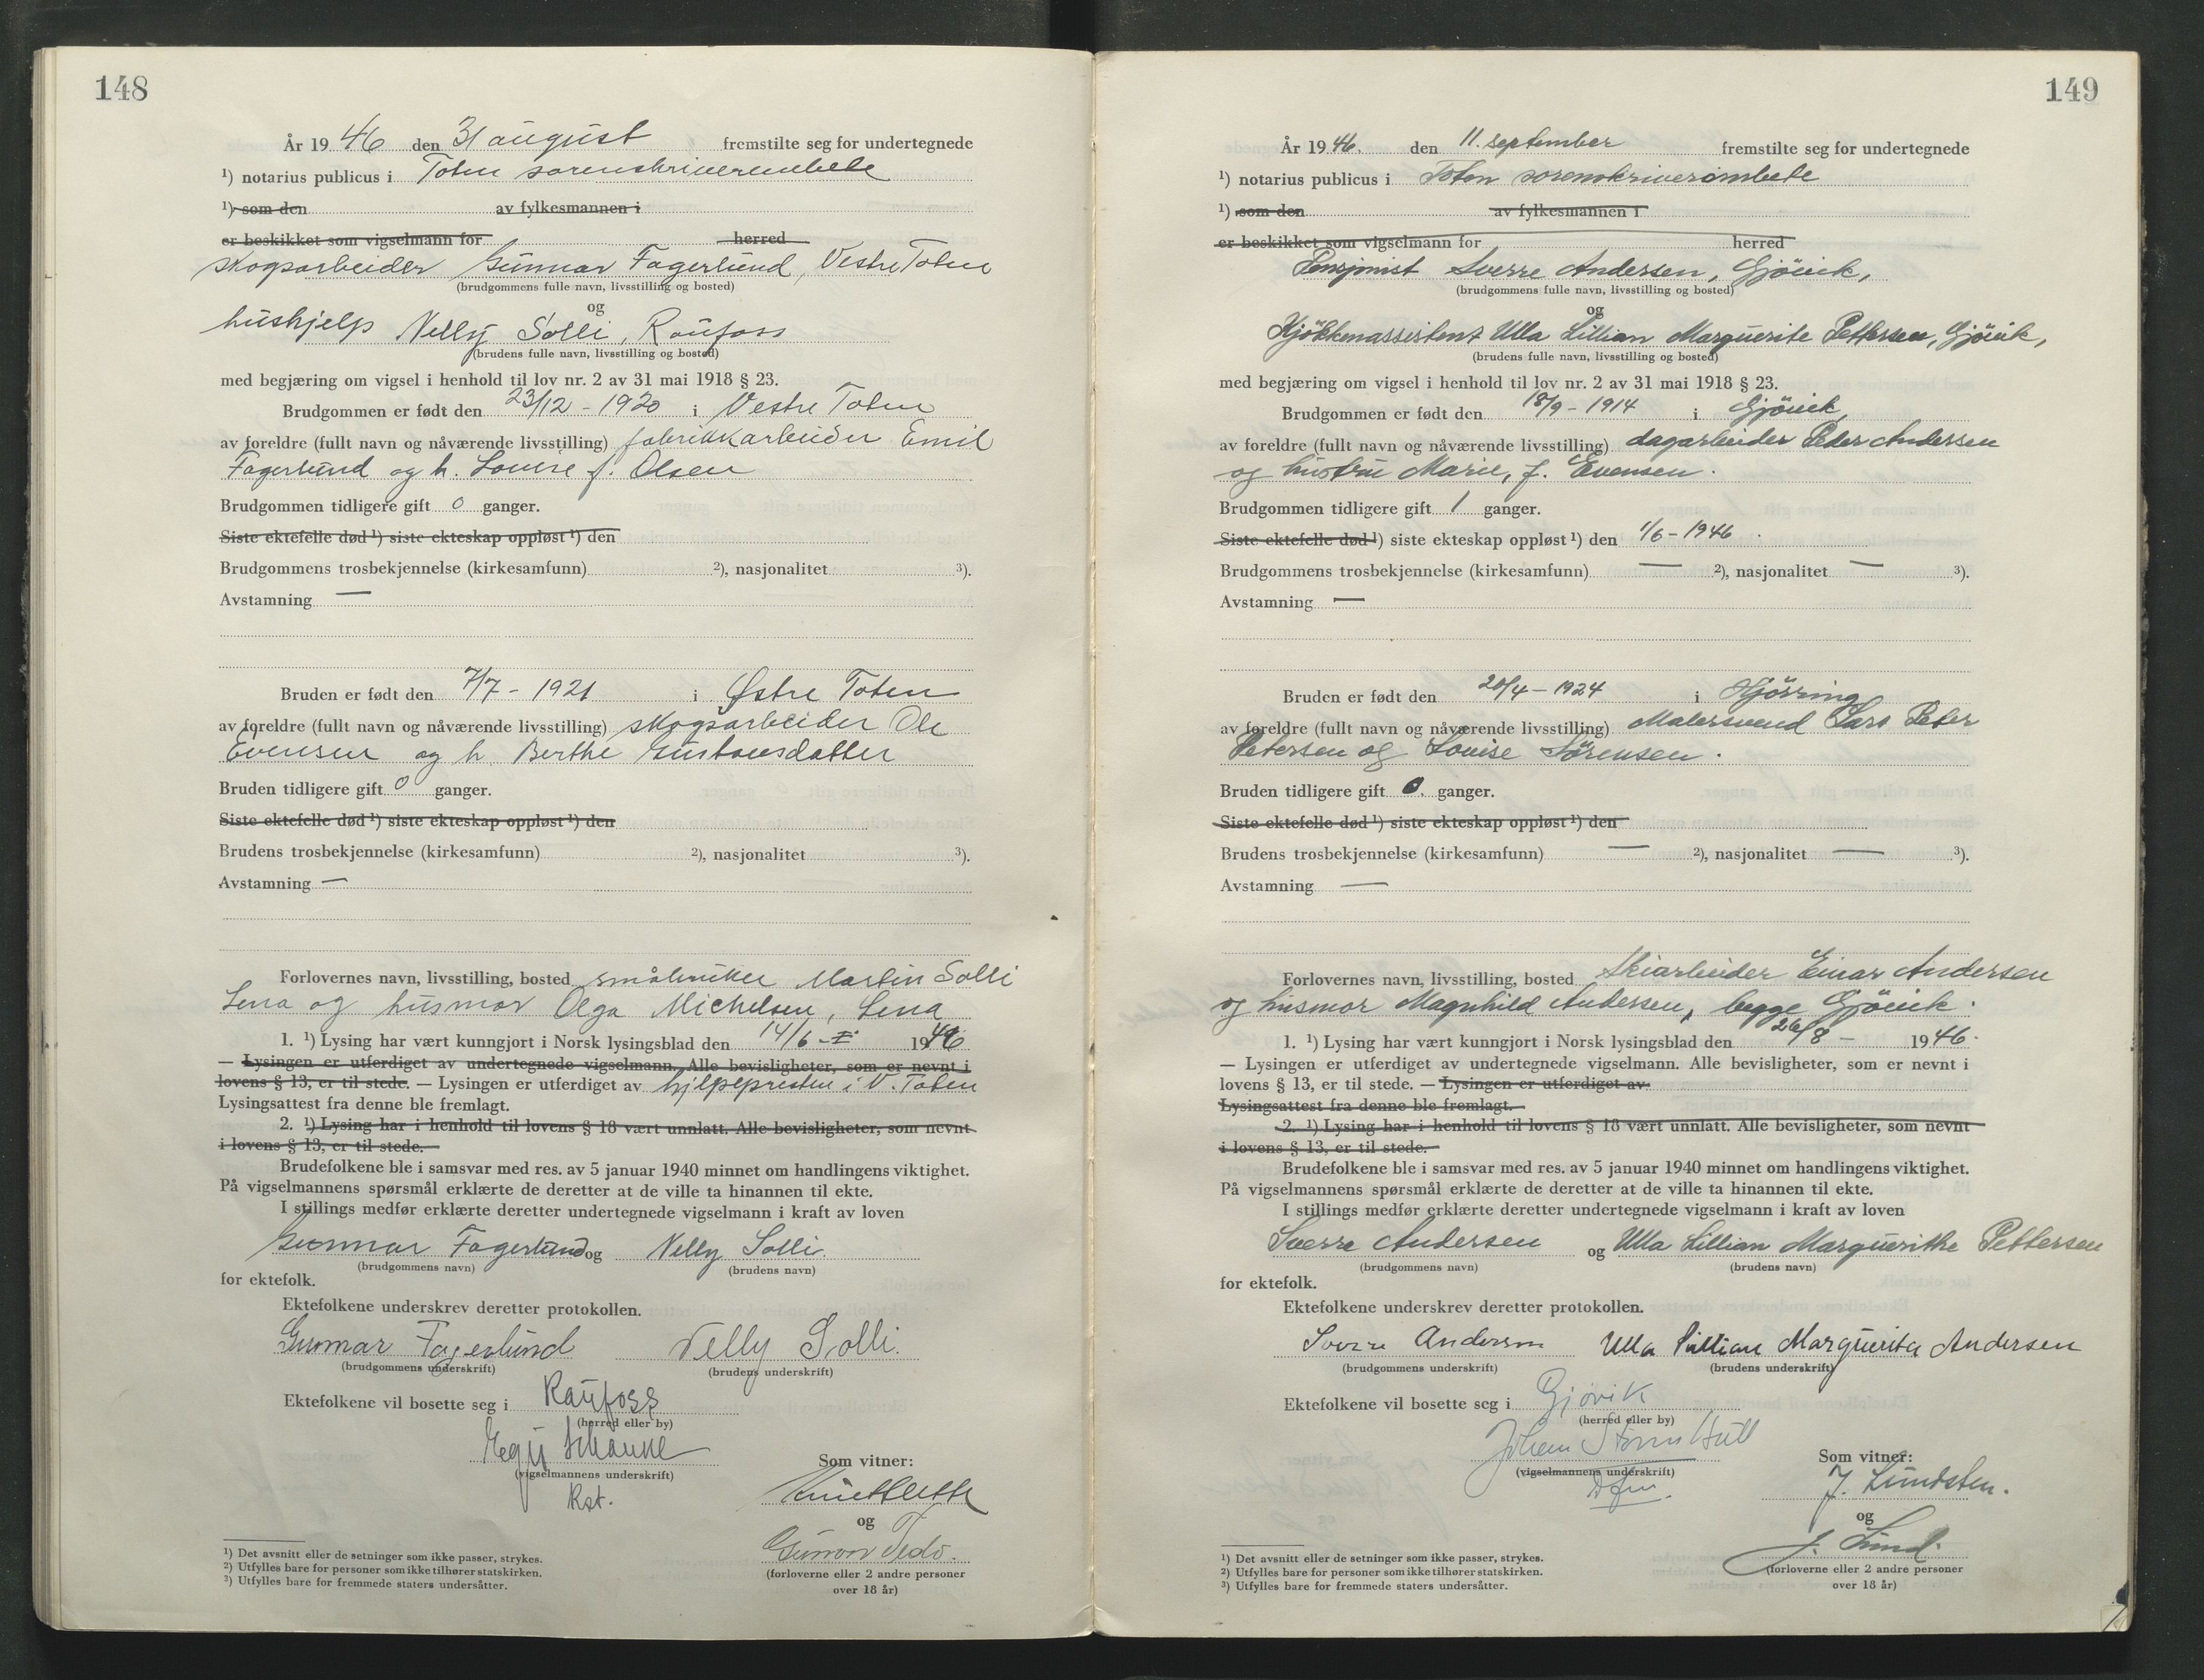 148
År 1946 den 31 august fremstilte seg for undertegnede
¹) notarius publicus i Toten sorenskriverembete
¹) som den av fylkesmannen i
er beskikket som vigselmann for herred
skogsarbeider Gunnar Fagerlund, Vestre Toten
(brudgommens fulle navn, livsstilling og bosted)
og
hushjelp Nelly Solli, Raufoss
(brudens fulle navn, livsstilling og bosted)
med begjæring om vigsel i henhold til lov nr. 2 av 31 mai 1918 § 23.
Brudgommen er født den 23/12 - 1920 i Vestre Toten
av foreldre (fullt navn og nåværende livsstilling) fabrikkarbeider Emil
Fagerlund og h. Lovise f. Olsen
Brudgommen tidligere gift 0 ganger.
Siste ektefelle død ¹) siste ekteskap oppløst ¹) den
Brudgommens trosbekjennelse (kirkesamfunn) ²), nasjonalitet ³).
Avstamning —
Bruden er født den 7/7 - 1921 i Østre Toten
av foreldre (fullt navn og nåværende livsstilling) skogsarbeider Ole
Evensen og h. Berthe Gustavsdatter
Bruden tidligere gift 0 ganger.
Siste ektefelle død ¹) siste ekteskap oppløst ¹) den
Brudens trosbekjennelse (kirkesamfunn) ²), nasjonalitet ³).
Avstamning —
Forlovernes navn, livsstilling, bosted småbruker Martin Solli
Lena og husmor Olga Michelsen, Lena
1. ¹) Lysing har vært kunngjort i Norsk lysingsblad den 14/6 - 1946
— Lysingen er utferdiget av undertegnede vigselmann. Alle bevisligheter, som er nevnt i
lovens § 13, er til stede. — Lysingen er utferdiget av hjelpepresten i V. Toten
Lysingsattest fra denne ble fremlagt.
2. ¹) Lysing har i henhold til lovens § 18 vært unnlatt. Alle bevisligheter, som nevnt
i lovens § 13, er til stede.
Brudefolkene ble i samsvar med res. av 5 januar 1940 minnet om handlingens viktighet.
På vigselmannens spørsmål erklærte de deretter at de ville ta hinannen til ekte.
I stillings medfør erklærte deretter undertegnede vigselmann i kraft av loven
Gunnar Fagerlund og Nelly Solli
(brudgommens navn) (brudens navn)
for ektefolk.
Ektefolkene underskrev deretter protokollen.
Gunnar Fagerlund Nelly Solli.
(brudgommens underskrift) (brudens underskrift)
Ektefolkene vil bosette seg i Raufoss
(herred eller by)
Schanke
(vigselmannens underskrift)
Som vitner:
og
Gunvor
(forloverne eller 2 andre personer
over 18 år)
¹) Det avsnitt eller de setninger som ikke passer, strykes.
²) Utfylles bare for personer som ikke tilhører statskirken.
³) Utfylles bare for fremmede staters undersåtter.
149
År 1946. den 11. september fremstilte seg for undertegnede
¹) notarius publicus i Toten sorenskriverembete
¹) som den av fylkesmannen i
er beskikket som vigselmann for herred
Pensjonist Sverre Andersen, Gjövik,
(brudgommens fulle navn, livsstilling og bosted)
og
Kjökkenassistent Ulla Lillian Marguerite Pettersen, Gjövik,
(brudens fulle navn, livsstilling og bosted)
med begjæring om vigsel i henhold til lov nr. 2 av 31 mai 1918 § 23.
Brudgommen er født den 18/9 - 1914 i Gjövik,
av foreldre (fullt navn og nåværende livsstilling) dagarbeider Peder Andersen
og hustru Marie, f. Evensen.
Brudgommen tidligere gift 1 ganger.
Siste ektefelle død ¹) siste ekteskap oppløst ¹) den 1/6 - 1946.
Brudgommens trosbekjennelse (kirkesamfunn) — ²), nasjonalitet — ³).
Avstamning —
Bruden er født den 20/4 - 1924 i Hjörring
av foreldre (fullt navn og nåværende livsstilling) Malersvend Lars Peter
Petersen og Louise Sörensen.
Bruden tidligere gift 0. ganger.
Siste ektefelle død ¹) siste ekteskap oppløst ¹) den
Brudens trosbekjennelse (kirkesamfunn) — ²), nasjonalitet — ³).
Avstamning —
Forlovernes navn, livsstilling, bosted Skiarbeider Einar Andersen
og husmor Magnhild Andersen, begge Gjövik.
1. ¹) Lysing har vært kunngjort i Norsk lysingsblad den 26/8 - 1946.
— Lysingen er utferdiget av undertegnede vigselmann. Alle bevisligheter, som er nevnt i
lovens § 13, er til stede. — Lysingen er utferdiget av
Lysingsattest fra denne ble fremlagt.
2. ¹) Lysing har i henhold til lovens § 18 vært unnlatt. Alle bevisligheter, som nevnt
i lovens § 13, er til stede.
Brudefolkene ble i samsvar med res. av 5 januar 1940 minnet om handlingens viktighet.
På vigselmannens spørsmål erklærte de deretter at de ville ta hinannen til ekte.
I stillings medfør erklærte deretter undertegnede vigselmann i kraft av loven
Sverre Andersen og Ulla Lillian Marguerithe Pettersen
(brudgommens navn) (brudens navn)
for ektefolk.
Ektefolkene underskrev deretter protokollen.
Sverre Andersen Ulla Lillian Marguerita Andersen
(brudgommens underskrift) (brudens underskrift)
Ektefolkene vil bosette seg i Gjövik
(herred eller by)
Johan Storm
(vigselmannens underskrift)
Som vitner:
J. Lundsten.
og
J. Lund.
(forloverne eller 2 andre personer
over 18 år)
¹) Det avsnitt eller de setninger som ikke passer, strykes.
²) Utfylles bare for personer som ikke tilhører statskirken.
³) Utfylles bare for fremmede staters undersåtter.